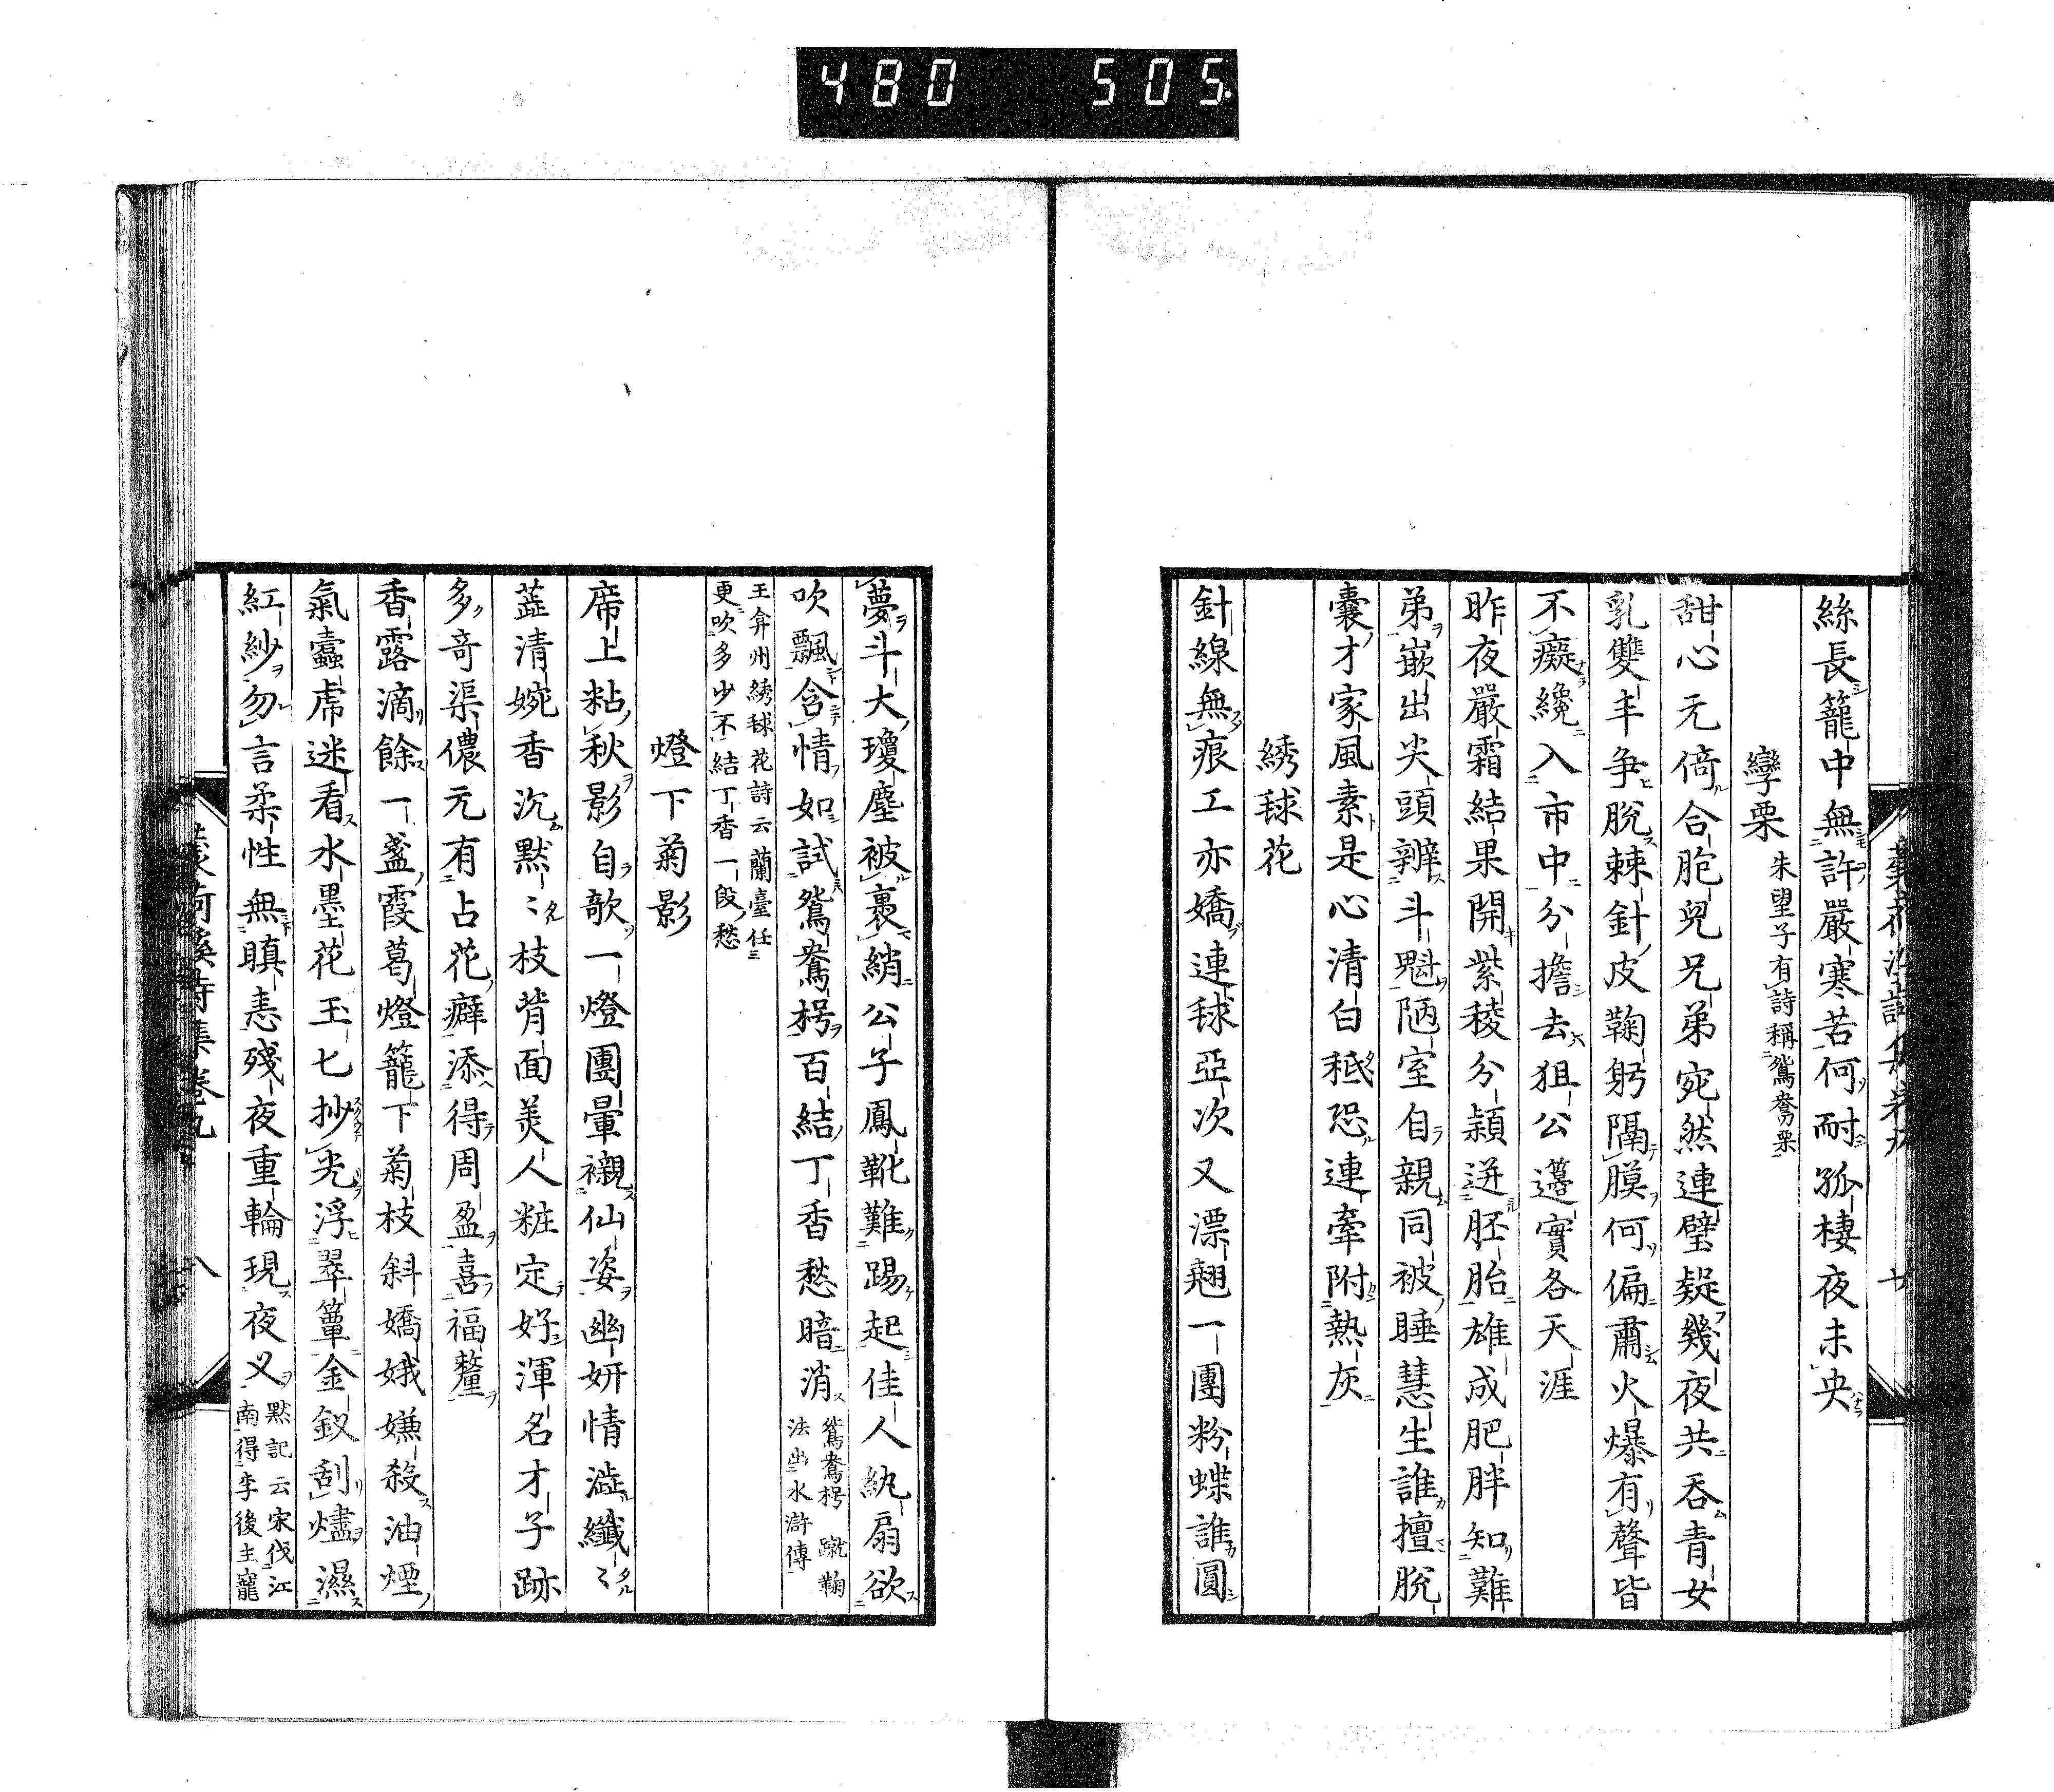 480 505
絲長籠中無許嚴寒苦何耐孤棲夜未央
孿栗 朱望子有詩稱鴛鴦栗
甜心元倚合胞兒兄弟宛然連璧疑幾夜共吞青女
乳雙丰爭脫棘針皮鞠躬隔膜何偏肅火爆有聲皆
不癡纔入市中分擔去狙公籩實各天涯
昨夜嚴霜結果開紫稜分穎迸胚胎雄成肥胖知難
弟嵌出尖頭辨斗魁陋室自親同被睡慧生誰擅脫
囊才家風素是心清白秪恐連牽附熱灰
綉毬花
針線無痕工亦嬌連毬亞次又漂翹一團粉蝶誰圓
夢斗大瓊塵被裹綃公子鳳靴難踢起佳人紈扇欲
吹飄含情如試鴛鴦枴百結丁香愁暗消 鴛鴦枴蹴鞠
法出水滸傳
王弇州綉毬花詩云蘭臺任
更吹多少不結丁香一段愁
燈下菊影
席上粘秋影自欹一燈團暈襯仙姿幽妍情澁纖〻
蕋清婉香沉默〻枝背面美人粧定好渾名才子跡
多奇渠儂元有占花癖添得周盈喜福釐
香露滴餘一盞霞葛燈籠下菊枝斜嬌娥嫌殺油煙
氣蠹虎迷看水墨花玉匕抄光浮翠簟金釵刮燼濕
紅紗勿言柔性無瞋恚殘夜重輪現夜叉 默記云宋伐江
南得李後主寵
詩集卷九
八